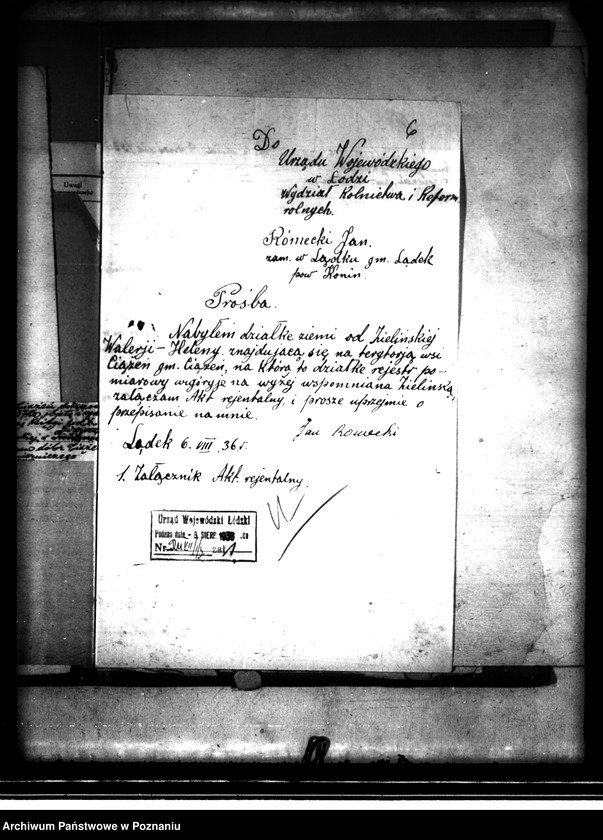 6
Do
Urzędu Wojewódzkiego
w Łodzi
Wydział Rolnictwa i Reform
rolnych.
Rómecki Jan.
zam. w Lądku gm. Lądek
pow Konin.
Prośba.
Nabyłem działkie ziemi od Zielińskiej
Walerji – Heleny, znajdującą się na terytorją wsi
Ciążeń gm. Ciążeń, na którą to działkę rejestr po-
miarowy wigóryje na wyżej wspomniana Zielinską,
załączam Akt rejentalny, i prosze uprzejmie o
przepisanie na mnie.
Jan Romecki
Lądek 6. VIII. 36 r.
1. Załącznik Akt. rejentalny.
Urząd Wojewódzki Łódzki
data - 8. SIERP. 1936
Nr.
zał. 1
Uwagi
Archiwum Państwowe w Poznaniu